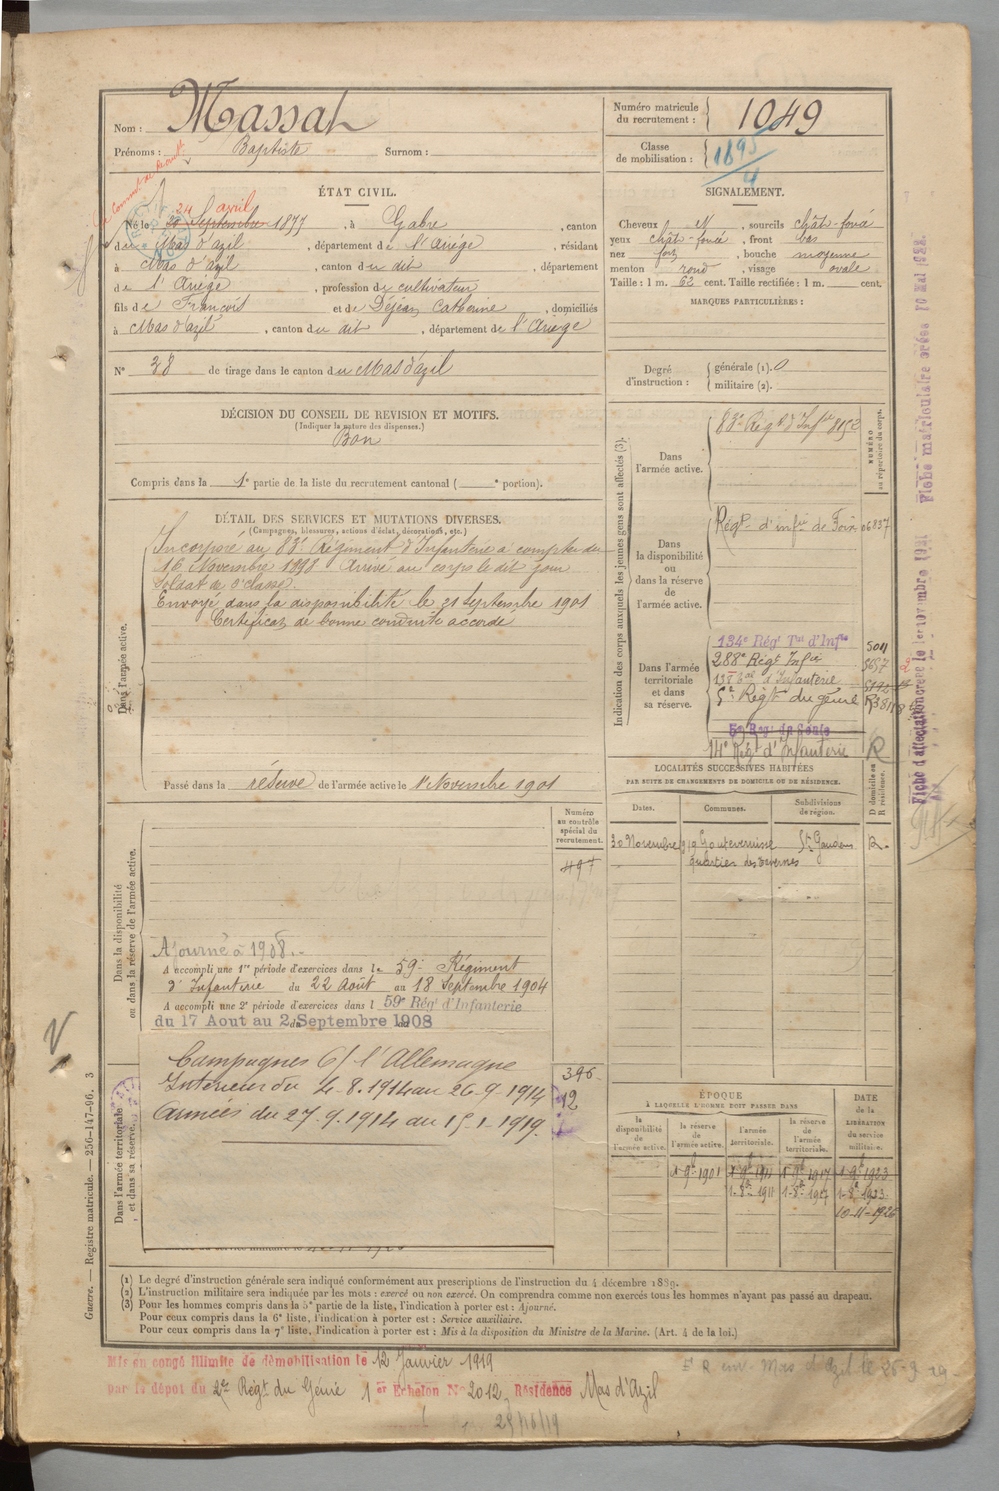 Nom : Massat
Prénoms : Baptiste Surnom :
Numéro matricule du recrutement : 1049
Classe de mobilisation : 1895/4
ÉTAT CIVIL.
Né le 20 Septembre 24 avril 1877, à Gabre, canton
du Mas d'azil, département de l'Ariège, résidant
à Mas d'azil, canton du dit, département
de l'Ariège, profession de cultivateur
fils de François et de Déjean Catherine, domiciliés
à Mas d'azil, canton du dit, département de l'Ariège
N° 38 de tirage dans le canton du Mas d'azil
SIGNALEMENT.
Cheveux N, sourcils chât-foncé
yeux chât-foncé, front bas
nez fort, bouche moyenne
menton rond, visage ovale
Taille : 1 m. 62 cent. Taille rectifiée : 1 m. cent.
MARQUES PARTICULIÈRES :
Degré d'instruction : générale (1). 0
militaire (2).
DÉCISION DU CONSEIL DE REVISION ET MOTIFS.
(Indiquer la nature des dispenses.)
Bon
Compris dans la 1e partie de la liste du recrutement cantonal ( e portion).
DÉTAIL DES SERVICES ET MUTATIONS DIVERSES.
(Campagnes, blessures, actions d'éclat, décorations, etc.)
Dans l'armée active.
Incorporé au 83e Régiment d'Infanterie à compter du
16 Novembre 1898 Arrivé au corps le dit jour
soldat de 2e classe.
Envoyé dans la disponibilité le 21 Septembre 1901
Certificat de bonne conduite accordé
Passé dans la réserve de l'armée active le 1er Novembre 1901
Indication des corps auxquels les jeunes gens sont affectés (3).
NUMÉRO au répertoire du corps.
Dans l'armée active.
83e Régt d'Infie 8152
Dans la disponibilité ou dans la réserve de l'armée active.
Régt d'infie de Foix 06837
Dans l'armée territoriale et dans sa réserve.
134e Régt Tal d'Infie 5011
288e Régt Infie
135e d'Infanterie
5e Régt du génie
5e Régt du Génie
14e Régt d'Infanterie R
LOCALITÉS SUCCESSIVES HABITÉES
PAR SUITE DE CHANGEMENTS DE DOMICILE OU DE RÉSIDENCE.
Dates. Communes. Subdivisions de région. D domicile ou R résidence.
30 Novembre 1919 Goutevernisse St Gaudens R.
quartier des Tavernes
Dans la disponibilité ou dans la réserve de l'armée active.
Numéro au contrôle spécial du recrutement.
497
Ajourné à 1908.
A accompli une 1re période d'exercices dans le 59e Régiment
d'Infanterie du 22 Août au 18 Septembre 1904
A accompli une 2e période d'exercices dans l 59e Régt d'Infanterie
du 17 Aout au 2 Septembre 1908
Dans l'armée territoriale et dans sa réserve.
396
12
Campagnes C/ l'Allemagne
Intérieur du 4-8-1914 au 26-9-1914
Armées du 27-9-1914 au 15-1-1919.
ÉPOQUE
À LAQUELLE L'HOMME DOIT PASSER DANS
DATE de la LIBÉRATION du service militaire.
la disponibilité de l'armée active. la réserve de l'armée active. l'armée territoriale. la réserve de l'armée territoriale.
1-9bre 1901 1-9bre 1911 1-9bre 1917 1-9bre 1923
1-8bre 1911 1-8bre 1917 1-8bre 1923
10-11-1926
(1) Le degré d'instruction générale sera indiqué conformément aux prescriptions de l'instruction du 4 décembre 1889.
(2) L'instruction militaire sera indiquée par les mots : exercé ou non exercé. On comprendra comme non exercés tous les hommes n'ayant pas passé au drapeau.
(3) Pour les hommes compris dans la 5e partie de la liste, l'indication à porter est : Ajourné.
Pour ceux compris dans la 6e liste, l'indication à porter est : Service auxiliaire.
Pour ceux compris dans la 7e liste, l'indication à porter est : Mis à la disposition du Ministre de la Marine. (Art. 4 de la loi.)
Mis en congé illimité de démobilisation le 12 Janvier 1919
par le dépôt du 2e Régt du Génie 1er Echelon N° 2012, Résidence Mas d'Azil
Guerre. — Registre matricule. — 256-147-96. 3
Fiche matriculaire créée 10 Mai 1922.